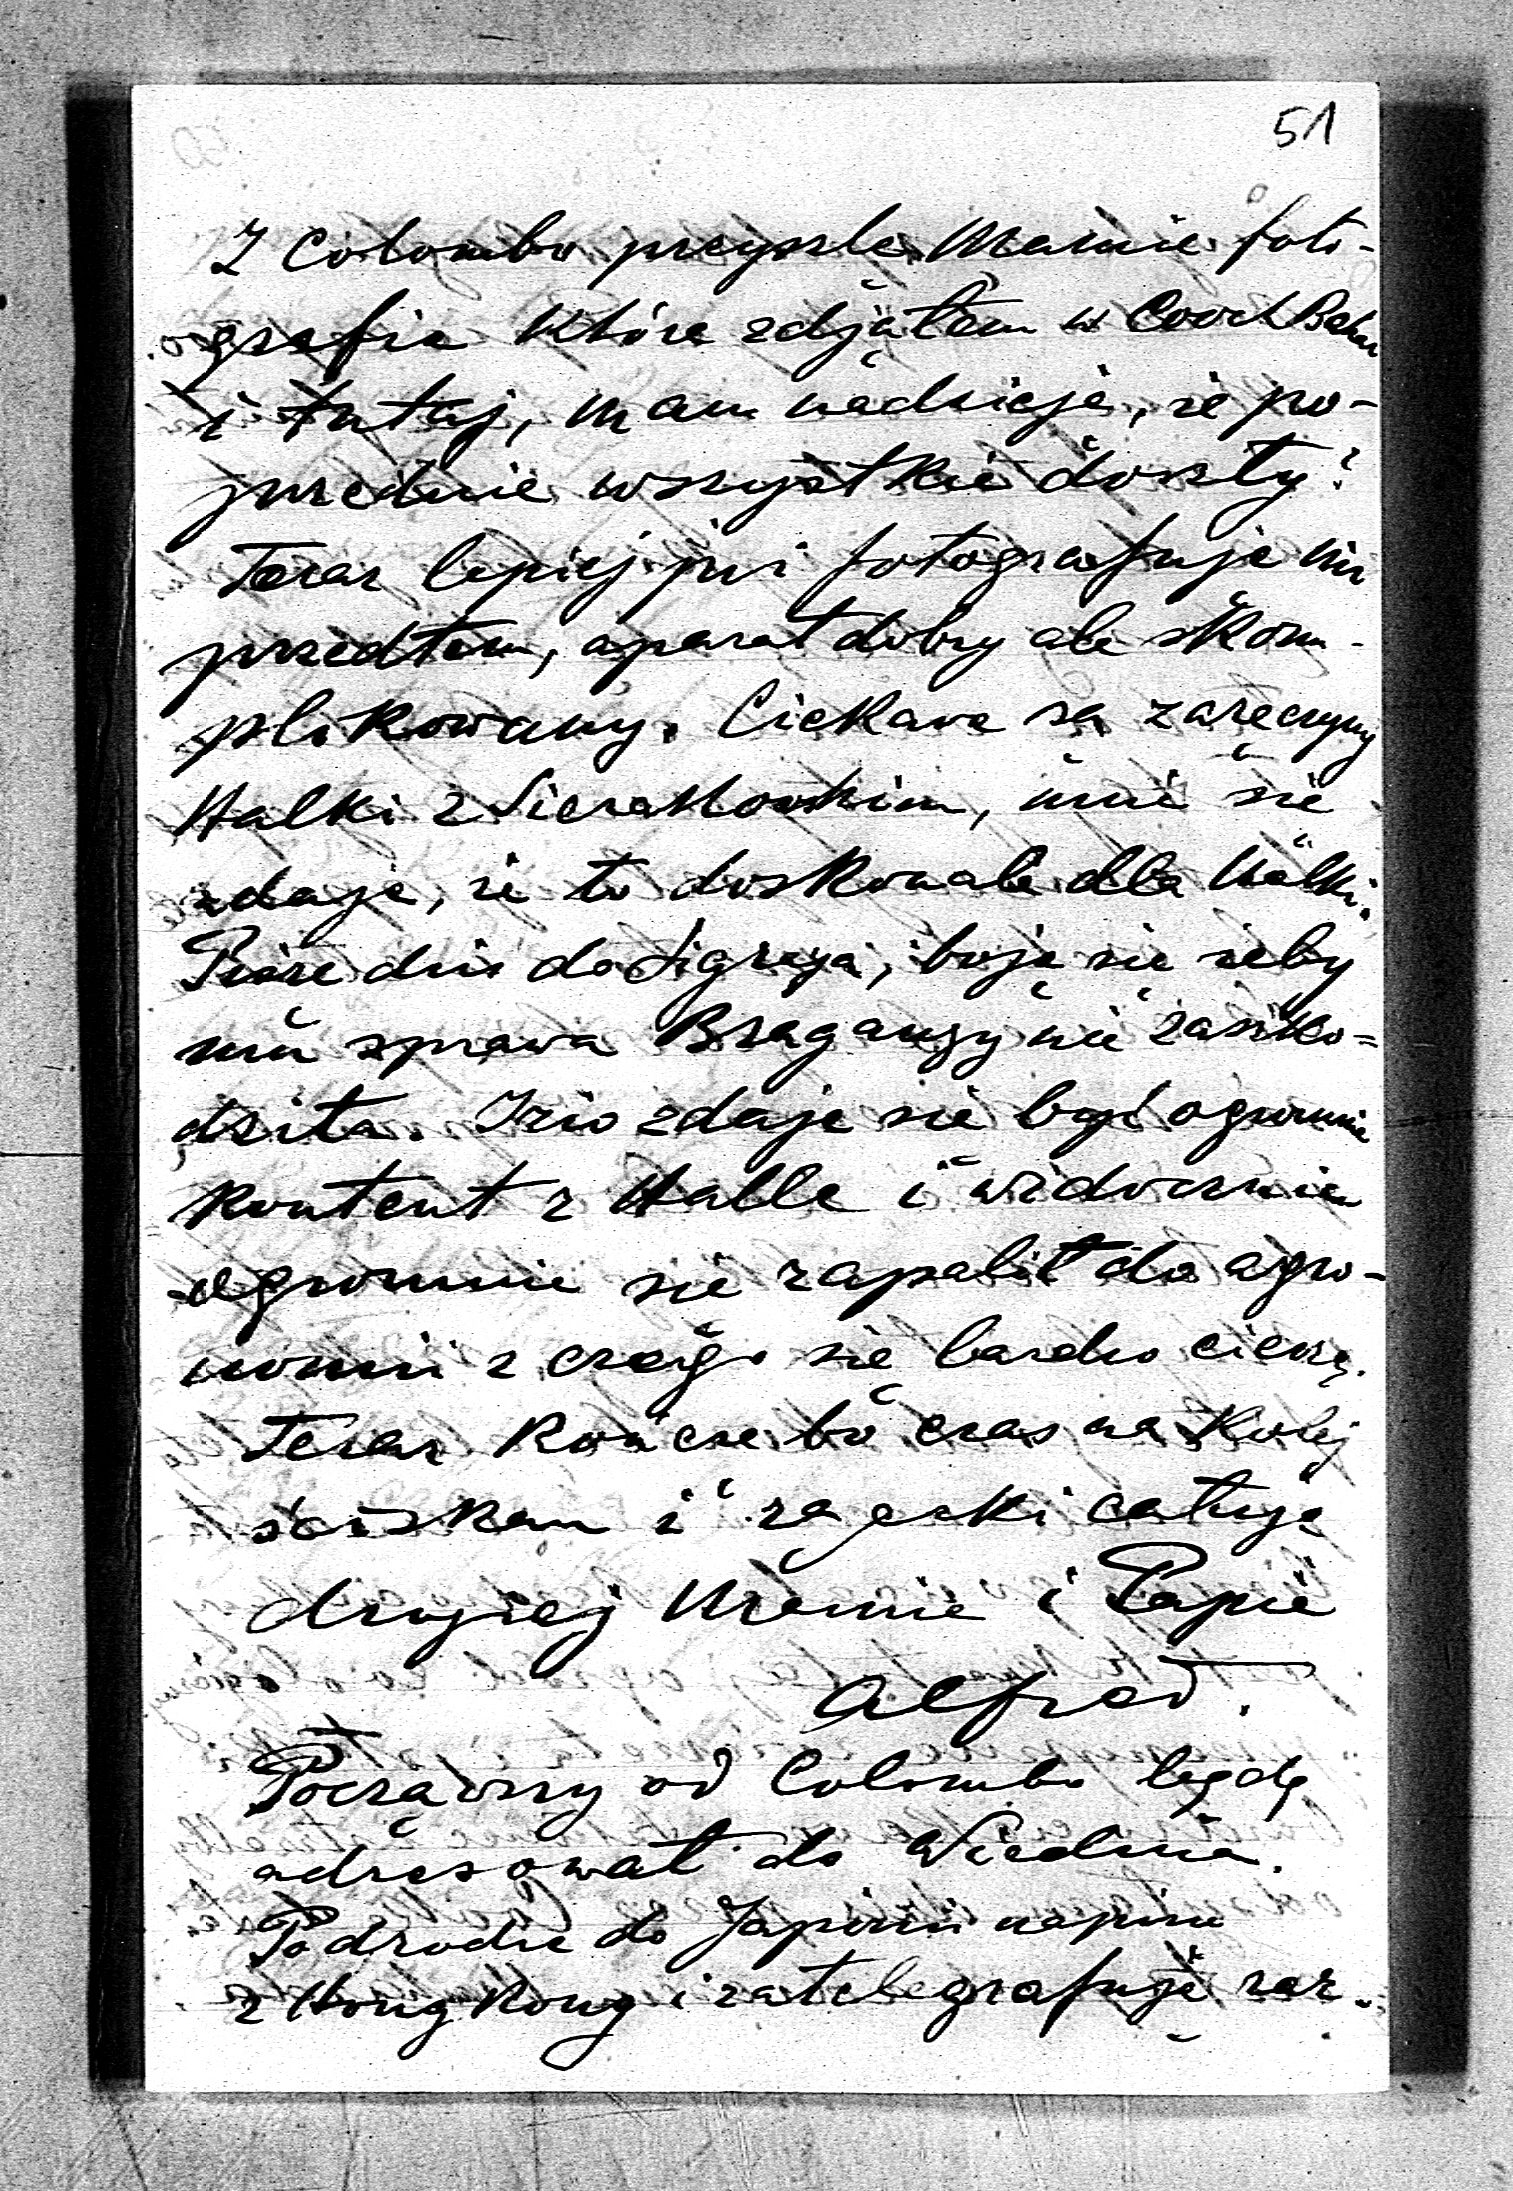 51
Z Colombo przyszlę Mamie foto-
grafie które zdjąłem w Cooch Behar
i tutaj, mam nadzieję, że po-
przednie wszystkie doszły?
Teraz lepiej już fotografuję niż
przedtem, aparat dobry ale skom-
plikowany. Ciekawe są zaręczyny
Halki z Sierakowskim, mnie się
zdaje, że to doskonale dla Halki.
Piszę dziś do Sigreya, boję się żeby
mu sprawa Braganzy nie zaszko-
dziła. Izio zdaje się być ogromnie
kontent z Halle i widocznie
ogromnie się zapalił do agro-
nomii z czego się bardzo cieszę.
Teraz kończę bo czas na kolej
ściskam i rączki całuję
drogiej Mamie i Papie
Alfred.
Począwszy od Colombo będę
adresował do Wiednia.
Po drodze do Japonii napiszę
z Hong Kong i zatelegrafuję raz.